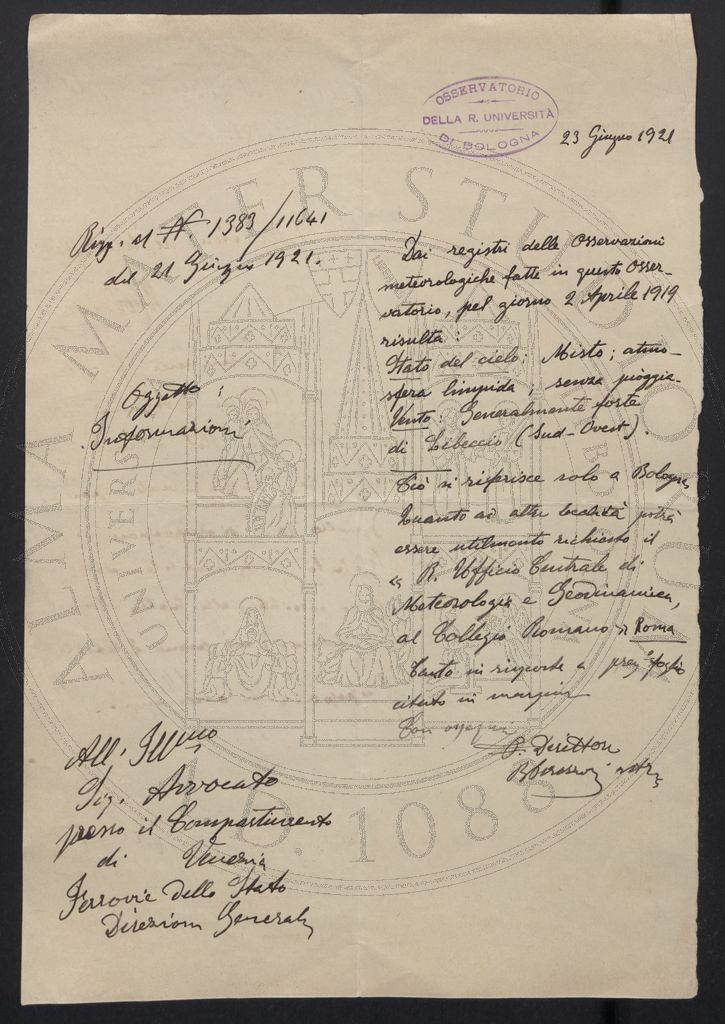 OSSERVATORIO
DELLA R. UNIVERSITÀ
DI BOLOGNA
23 Giugno 1921
Risp. al N. 1383/11641
del 21 Giugno 1921.
Oggetto:
Informazioni
Dai registri delle Osservazioni
meteorologiche fatte in questo Osser-
vatorio, pel giorno 2 Aprile 1919
risulta:
Stato del cielo: Misto; atmo-
sfera limpida; senza pioggia.
Vento: Generalmente forte
di Libeccio (Sud-Ovest).
Ciò si riferisce solo a Bologna
Quanto ad altre località potrà
essere utilmente richiesto il
« R. Ufficio Centrale di
Meteorologia e Geodinamica,
al Collegio Romano » Roma
Tanto in risposta a preg.º foglio
citato in margine
Con ossequi
Il Direttore
All'Illmo
Sig. Avvocato
presso il Compartimento
di Venezia
Ferrovie dello Stato
Direzione Generale
ALMA MATER STUDIORUM
A.D. 1088